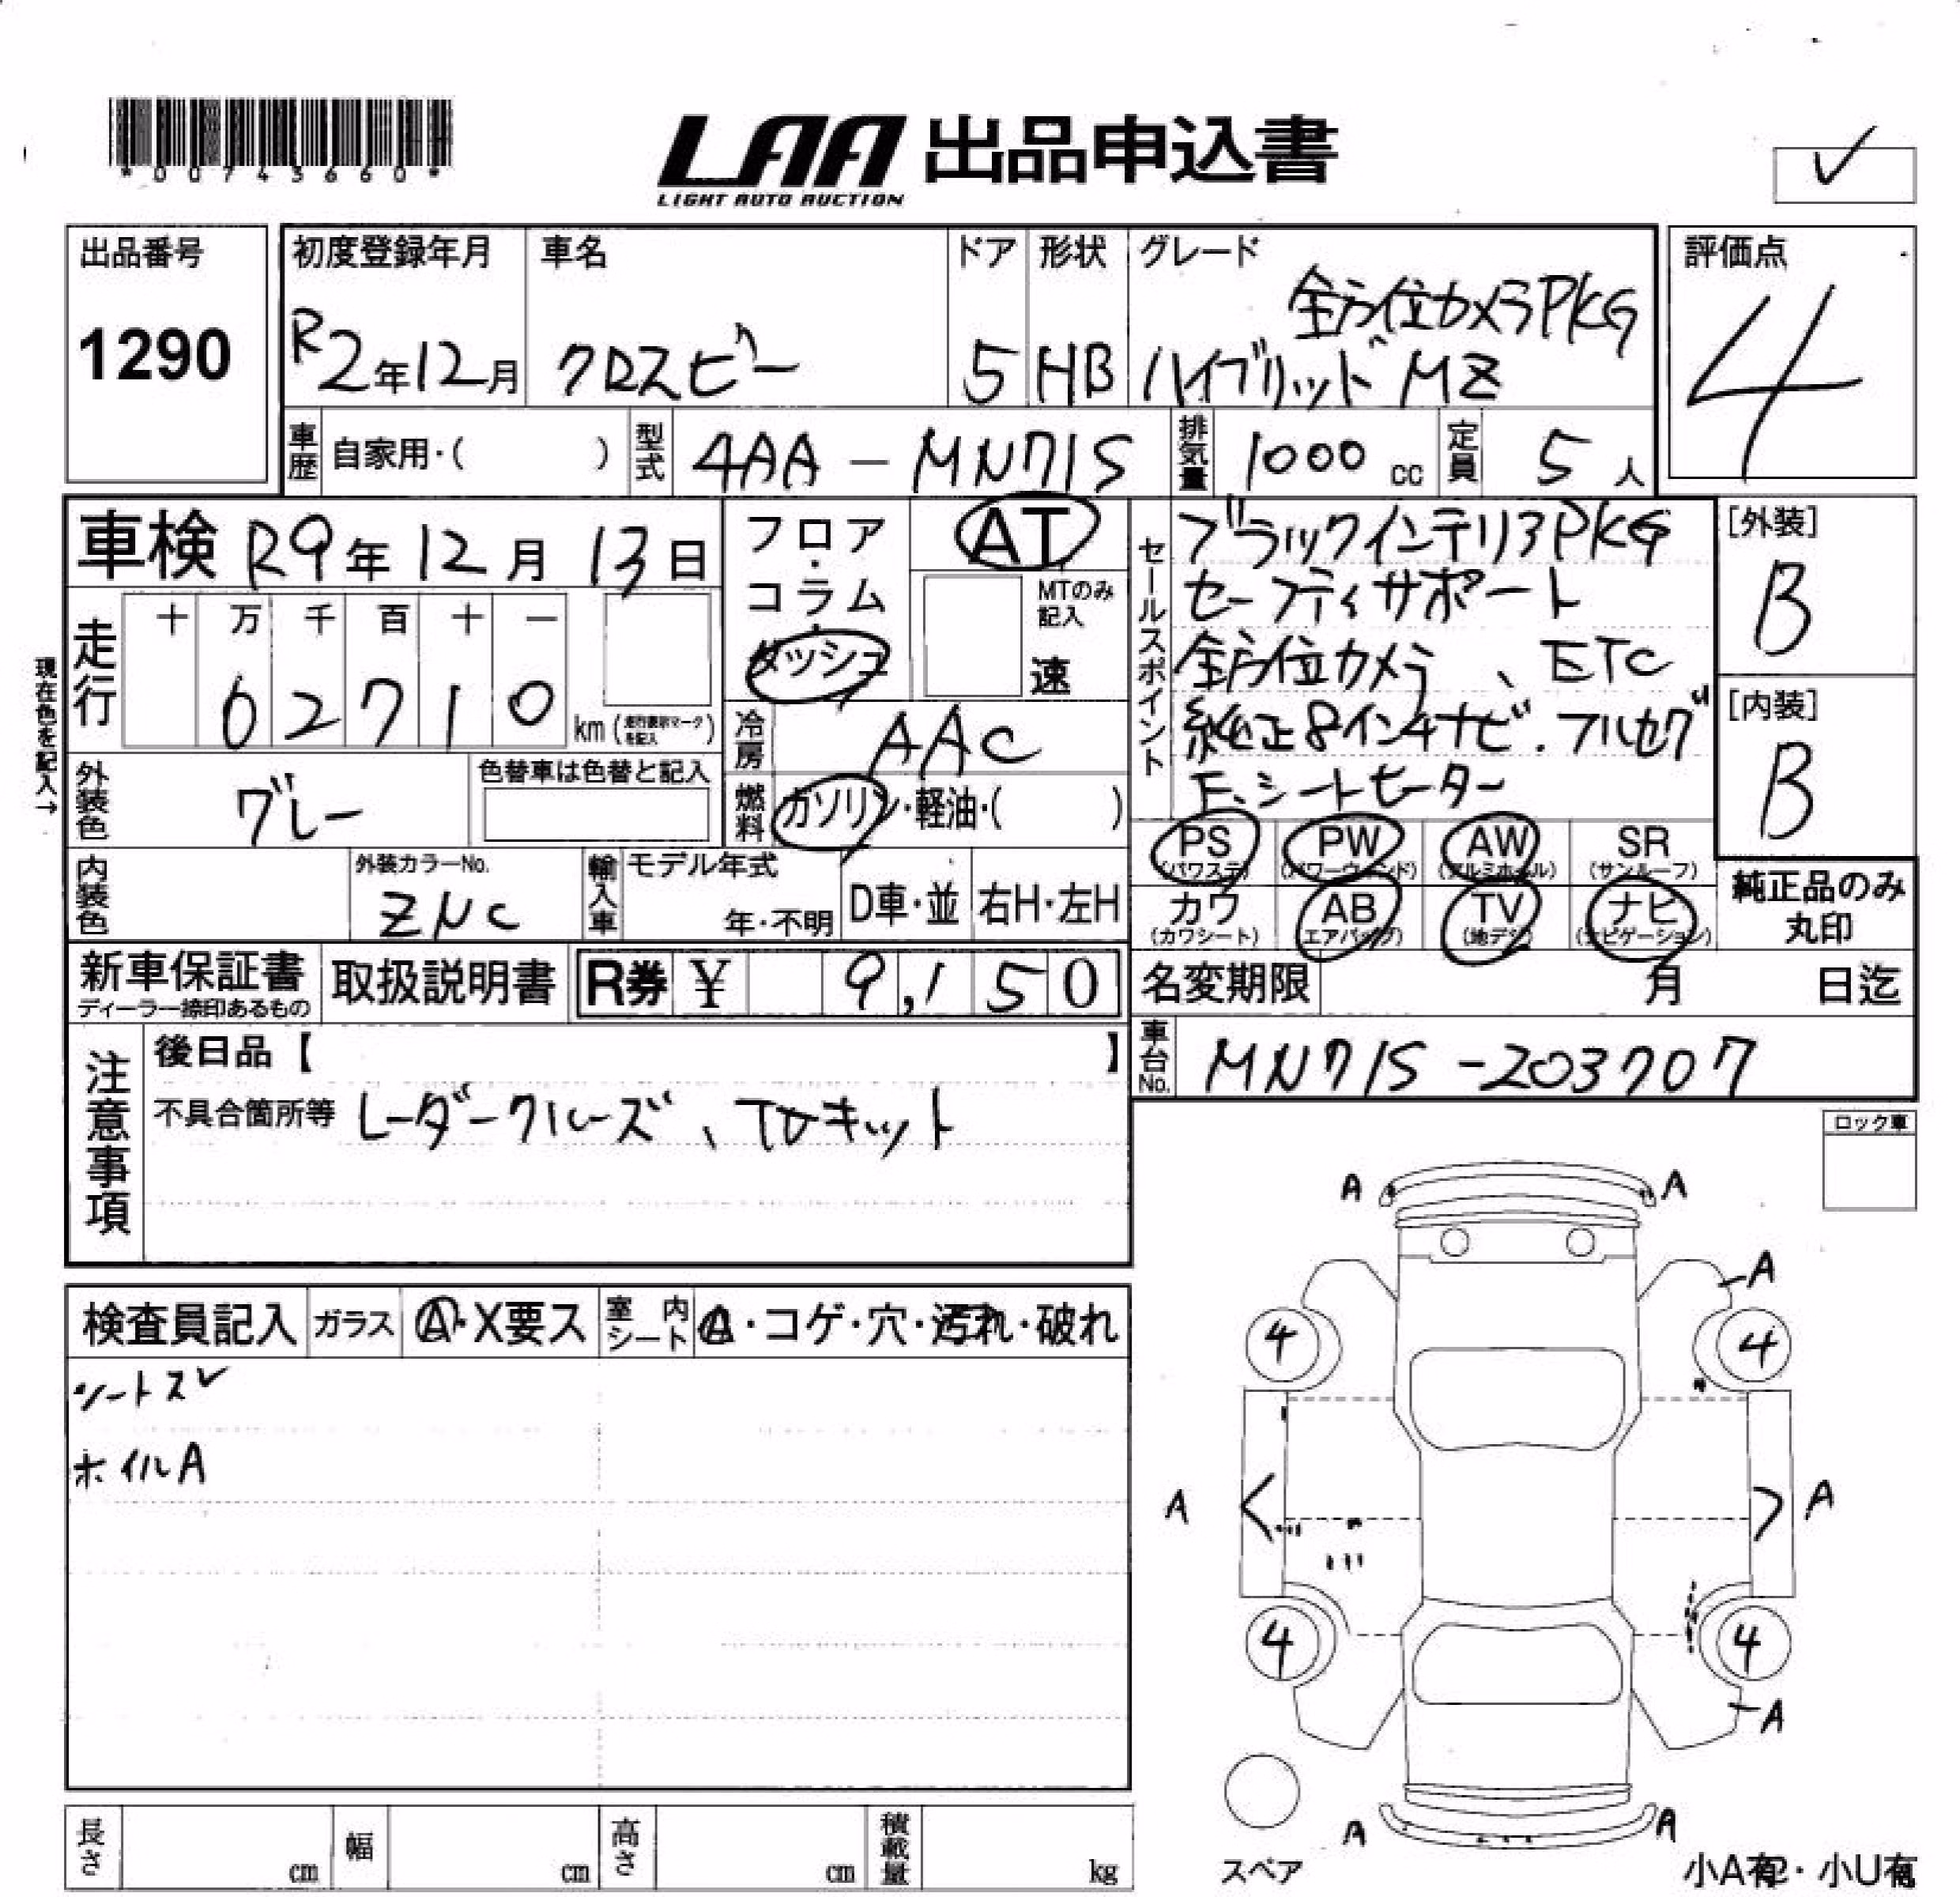 *00743660*
LAA 出品申込書
LIGHT AUTO AUCTION
✓
出品番号
1290
初度登録年月
R2年12月
車名
クロスビー
ドア
5
形状
HB
グレード
全方位カメラPKG
ハイブリッド MZ
評価点
4
車歴 自家用・( )
型式 4AA-MN71S
排気量 1000 cc
定員 5 人
車検 R9年12月13日
フロア・コラム・ダッシュ
AT
MTのみ記入
速
セールスポイント
ブラックインテリアPKG
セーフティサポート
全方位カメラ、ETC
純正8インチナビ.フルセグ
F.シートヒーター
[外装]
B
[内装]
B
現在色を記入→
走行
十 万 千 百 十 一
0 2 7 1 0 km (走行表示マークを記入)
冷房 AAC
外装色 グレー
色替車は色替と記入
燃料 ガソリン・軽油・( )
内装色
外装カラーNo.
ZNC
輸入車
モデル年式
年・不明
D車・並
右H・左H
PS (パワステ)
PW (パワーウィンド)
AW (アルミホイル)
SR (サンルーフ)
カワ (カワシート)
AB (エアバッグ)
TV (地デジ)
ナビ (ナビゲーション)
純正品のみ丸印
新車保証書
ディーラー捺印あるもの
取扱説明書
R券 ¥ 9,150
名変期限 月 日迄
車台No. MN71S-203707
注意事項
後日品【 】
不具合箇所等 レーダークルーズ、TVキット
ロック車
検査員記入
ガラス A・X要ス
室内シート A・コゲ・穴・汚れ・破れ
シートスレ
ホイルA
A A
A
4 4
A A
4 4
A
A A
スペア
長さ cm
幅 cm
高さ cm
積載量 kg
小A有・小U有